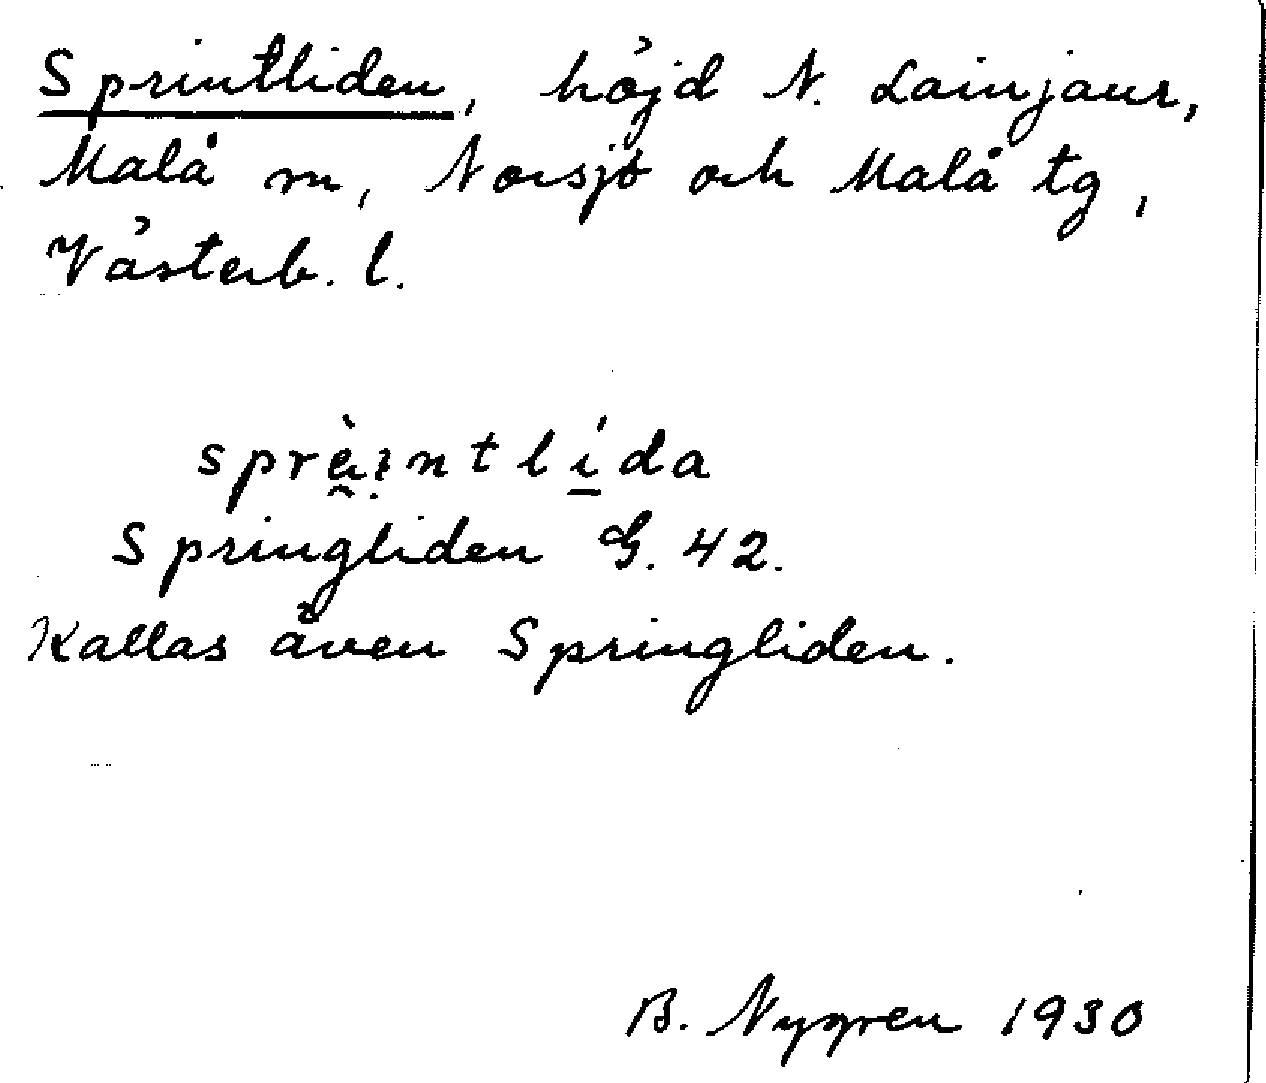 Sprintliden, höjd N. Lainjaur,
Malå sn, Norsjö och Malå tg,
Västerb. l.
sprèintlída
Springliden G. 42.
Kallas även Springliden.
B. Nygren 1930